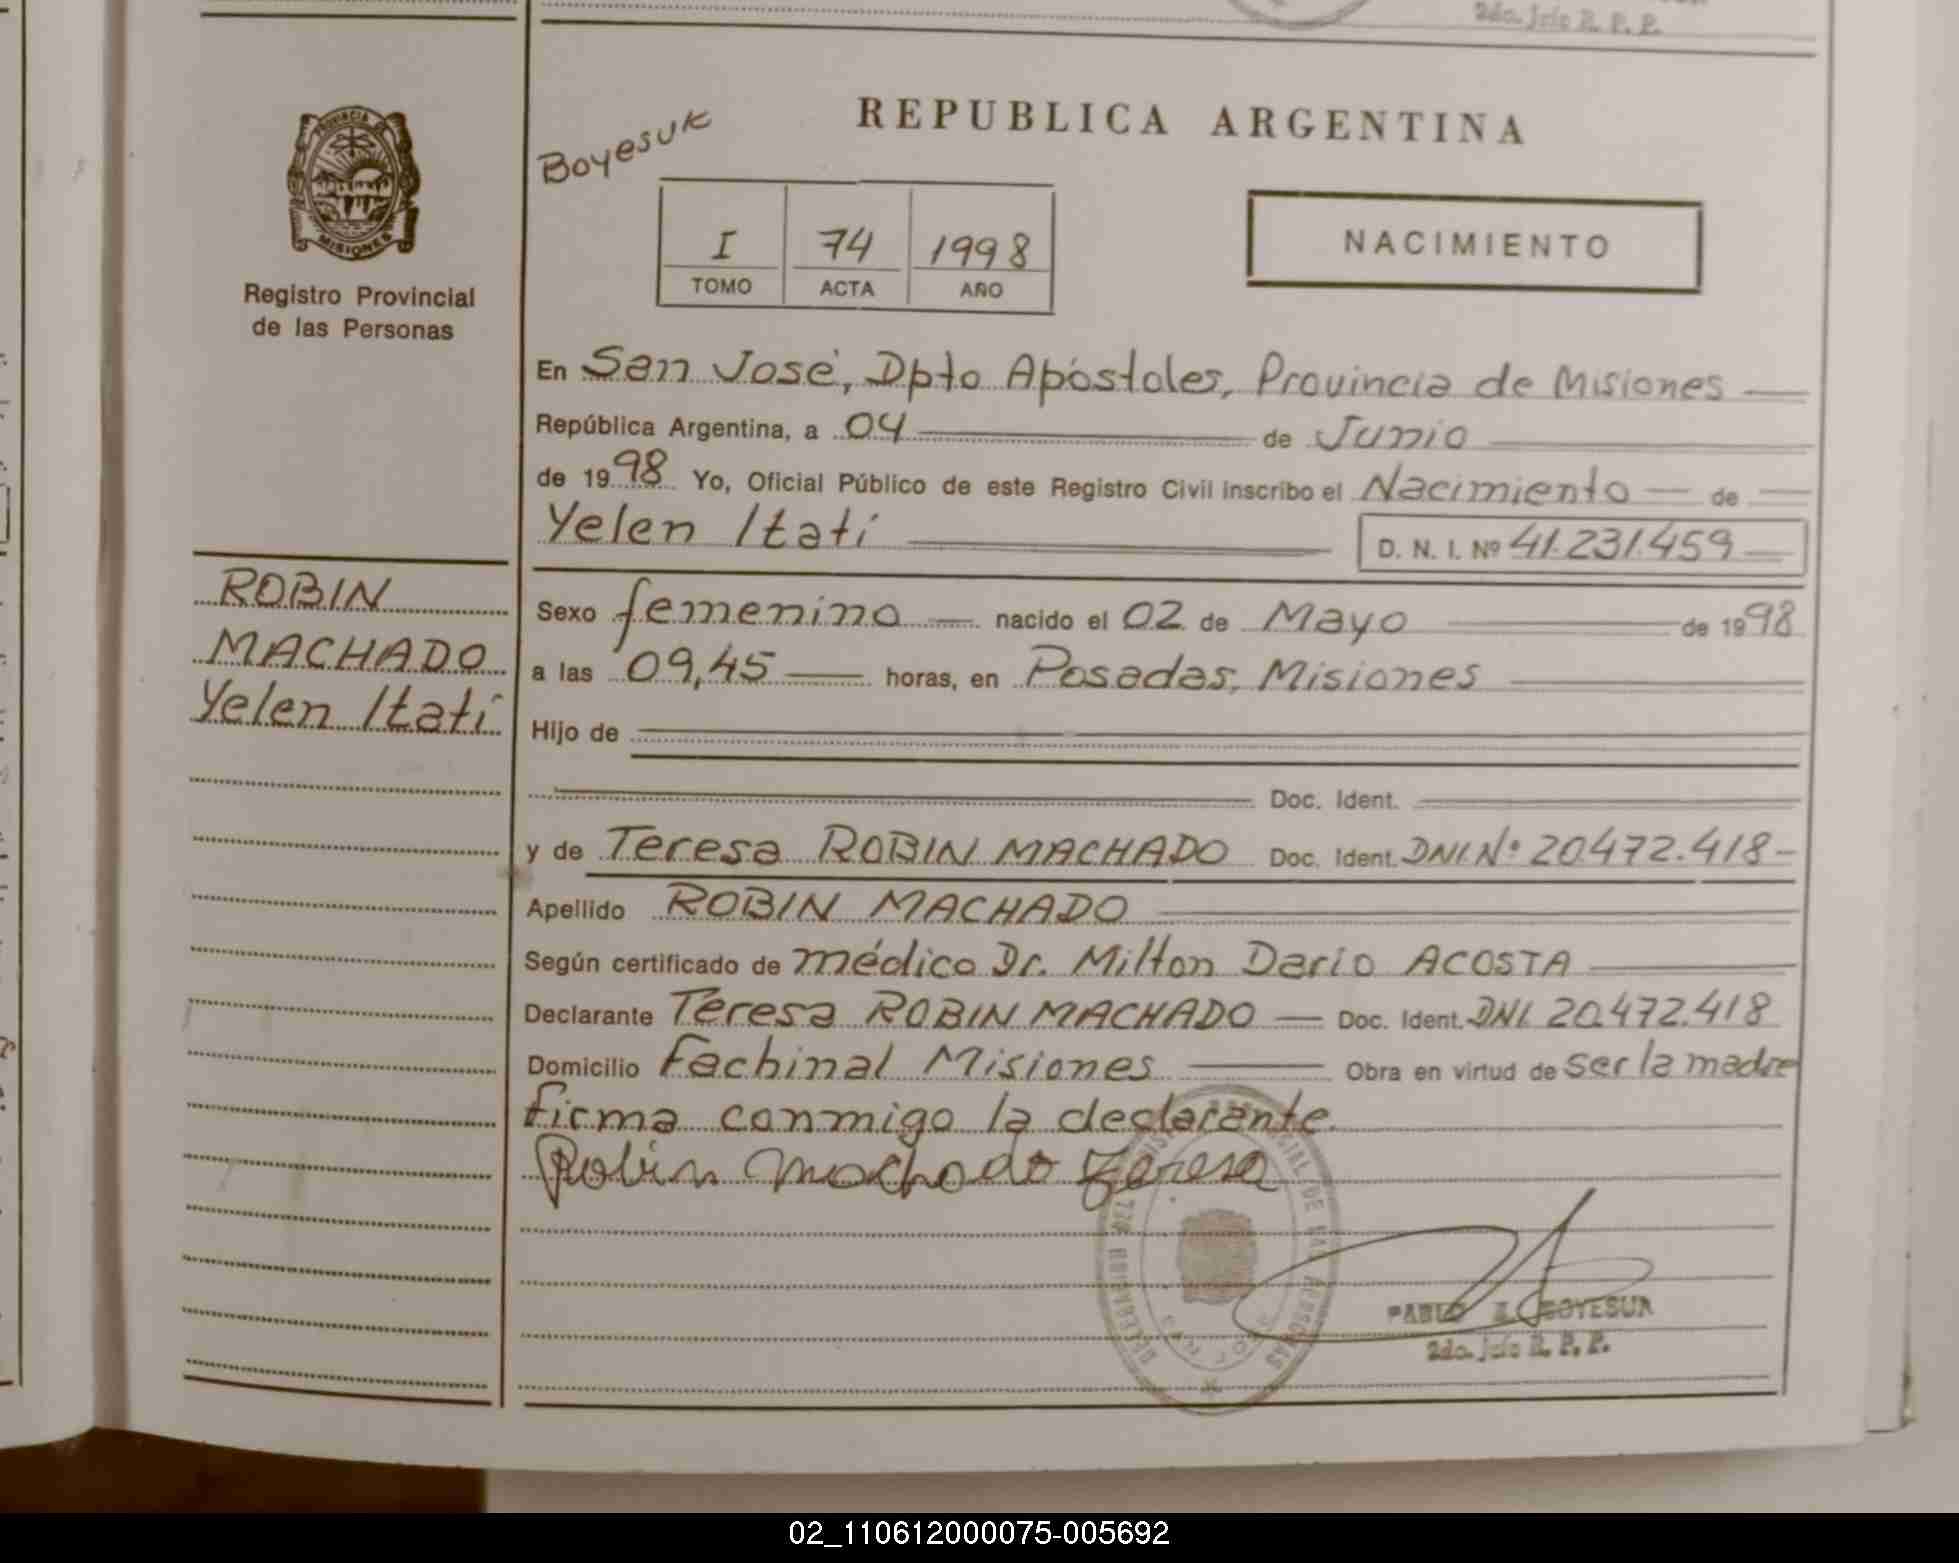 2do. Jdo R. P. P.
PROVINCIA DE
MISIONES
Registro Provincial
de las Personas
REPUBLICA ARGENTINA
Boyesuk
I 74 1998
TOMO ACTA AÑO
NACIMIENTO
En San José, Dpto Apóstoles, Provincia de Misiones
República Argentina, a 04 de Junio
de 1998 Yo, Oficial Público de este Registro Civil inscribo el Nacimiento de
Yelen Itatí D. N. I. Nº 41.231.459
ROBIN
MACHADO
Yelen Itatí
Sexo femenino nacido el 02 de Mayo de 1998
a las 09,45 horas, en Posadas, Misiones
Hijo de
Doc. Ident.
y de Teresa ROBIN MACHADO Doc. Ident. DNI.Nº 20.472.418
Apellido ROBIN MACHADO
Según certificado de médico Dr. Milton Dario ACOSTA
Declarante Teresa ROBIN MACHADO Doc. Ident. DNI. 20.472.418
Domicilio Fachinal Misiones Obra en virtud de ser la madre
firma conmigo la declarante.
Robin Machado Teresa
DE LAS PERSONAS
PABLO
2do. Jdo R. P. P.
02_110612000075-005692